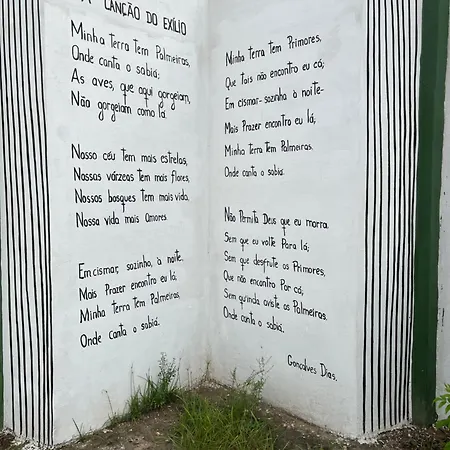 A CANÇÃO DO EXÍLIO
Minha Terra Tem Palmeiras,
Onde canta o sabiá;
As aves, que aqui gorgeiam,
Não gorgeiam como lá.
Nosso céu Tem mais estrelas,
Nossas várzeas Tem mais flores,
Nossos bosques Tem mais vida,
Nossa vida mais Amores.
Em cismar, sozinho, à noite,
Mais Prazer encontro eu lá;
Minha Terra Tem Palmeiras,
Onde canta o sabiá.
Minha terra tem Primores,
Que Tais não encontro eu cá;
Em cismar-sozinho à noite-
Mais Prazer encontro eu lá,
Minha Terra Tem Palmeiras.
Onde canta o sabiá.
Não Permita Deus que eu morra.
Sem que eu volte Para lá;
Sem que desfrute os Primores,
Que não encontro Por cá;
Sem quinda aviste as Palmeiras.
Onde canta o sabiá.
Gonçalves Dias.